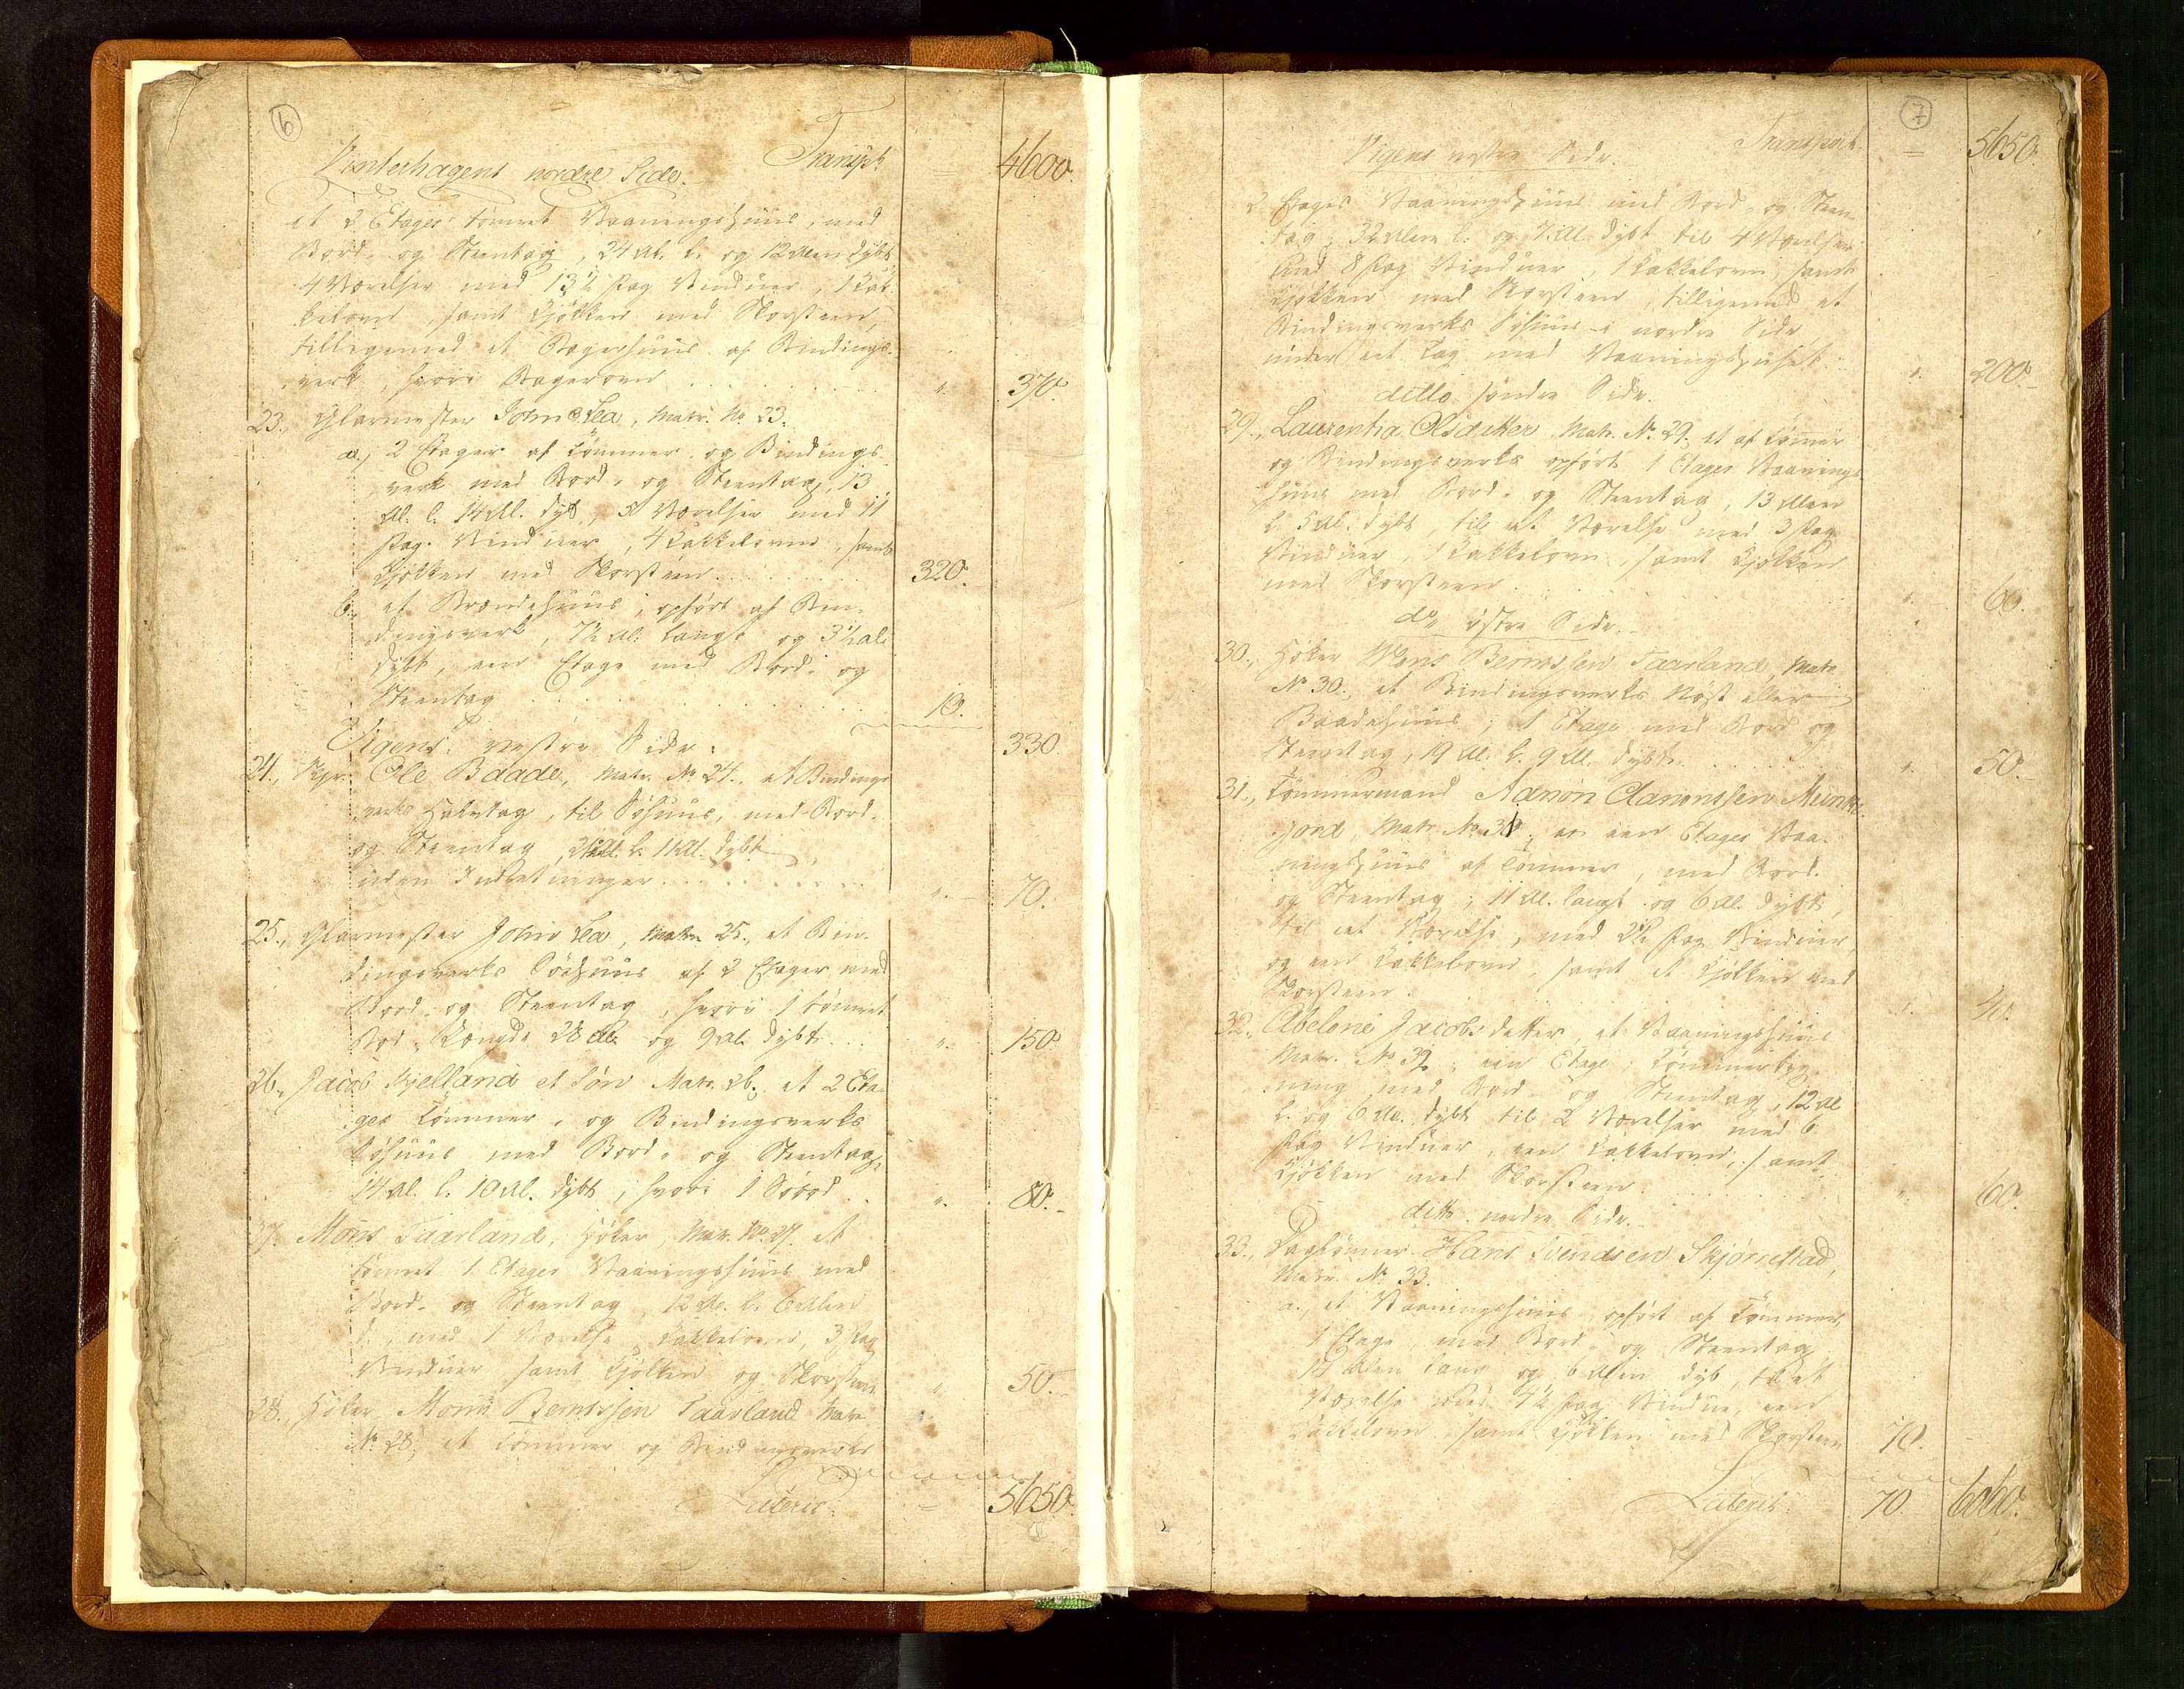 6
Vinterhagens nordre Side. Transpt = 4600.
et 2 Etages tömret Vaaningshuus, med
Bord- og Steentag, 24 Al. l. og 12 Alen dybt
4 Værelser med 13½ Fag Vinduer, 1 Kak-
kelovn, samt Kjökken med Skorsteen,
tilligemed et Bagerhuus af Bindings-
verk, hvori Bagerovn . . . ". 370.
23., Glarmester John Lea, Matr. No. 23.
a., 2 Etager af Tömmer og Bindings-
verk med Bord- og Steentag, 13
Al. l. 14 Al. dyb, 5 Værelser med 11
Fag Vinduer, 4 Kakkelovne, samt
Kjökken med Skorsteen . . . 320.
b., et Brændehuus, opfört af Bin-
dingsverk, 7½ Al. langt og 3½ Al.
dybt, een Etage med Bord- og
Steentag . . . 10.
330.
Vigens vestre Side.
24., Skpr. Ole Baade, Matr. No. 24., et Bindings
verks Halvtag, til Söhuus, med Bord-
og Steentag, Al. l. 11 Al. dybt
uden Indretninger . . . ". 70.
25., Glarmester John Lea, Matr. 25., et Bin-
dingsverks Söehuus af 2 Etager med
Bord- og Steentag, hvori 1 tömret
Bod, Længde 28 Al. og 9 Al. dybt . . . ". 150.
26., Jacob Kjelland et Sön Matr. 26. et 2 Eta-
ges Tömmer- og Bindingsverks
Söhuus med Bord- og Steentag,
14 Al. l. 10 Al. dybt, hvori 1 Söbod . . ". 80.
27. Mons Taarland, Höker, Matr. No. 27. et
tömret 1 Etages Vaaningshuus med
Bord- og Steentag, 12 Al. l. 6 Alen
d., med 1 Værelse, Kakkelovn, 3 Fag
Vinduer samt Kjökken og Skorsteen ". 50.
28., Höker Mons Berntssen Taarland Matr.
No. 28., et Tömmer og Bindingsverks
Lateris. = 5650.
7
Vigens vestre Side. Transport. = 5650.
2 Etages Vaaningshuus med Bord- og Steen-
tag, 32 Alen l. og 7 Al. dybt til 4 Værelser
med 8 Fag Vinduer, 1 Kakkelovn, samt
Kjökken med Skorsteen, tilligemed et
Bindingsverks Söhuus i nordre Side
under eet Tag med Vaaningshuset . . ". 200.
ditto söndre Side.
29., Laurentia Olsdatter Matr. No. 29., et af Tömmer
og Bindingsverks opfört 1 Etages Vaanings-
huus med Bord- og Steentag, 13 Alen
l. 5 Al. dybt, til et Værelse med 3 Fag
Vinduer, 1 Kakkelovn, samt Kjökken
med Skorsteen . . . ". 60.
do. östre Side.
30., Höker Mons Berntssen Taarland, Matr.
No. 30., et Bindingsverks Nöst eller
Baadehuus, 1 Etage med Bord og
Steentag, 19 Al. l. 9 Al. dybt . . . ". 50.
31., Tömmermand Aanon Aanonssen Munke-
jord, Matr. No. 31, en een Etages Vaa-
ningshuus af Tömmer, med Bord-
og Steentag, 11 Al. langt og 6 Al. dybt,
til eet Værelse, med 2½ Fag Vinduer,
og een Kakkelovn, samt et Kjökken med
Skorsteen. ". 40.
32., Abelone Jacobsdatter, et Vaaningshuus
Matr. No. 32, een Etage, Tömmerbyg-
ning med Bord- og Steentag, 12 Al
l. og 6 Al. dybt til 2 Værelser med 6
Fag Vinduer, een Kakkelovn, samt
Kjökken med Skorsteen . . . ". 60.
ditto nordre Side.
33., Daglönner Hans Svendsen Skjörestad,
Matr. No. 33.
a., et Vaaningshuus opfört af Tömmer
1 Etage, med Bord- og Steentag
14 Alen lang og 6 Alen dyb, til et
Værelse med 4½ Fag Vindue, een
Kakkelovn samt Kjökken med Skorsteen 70.
Lateris. 70. 6060.